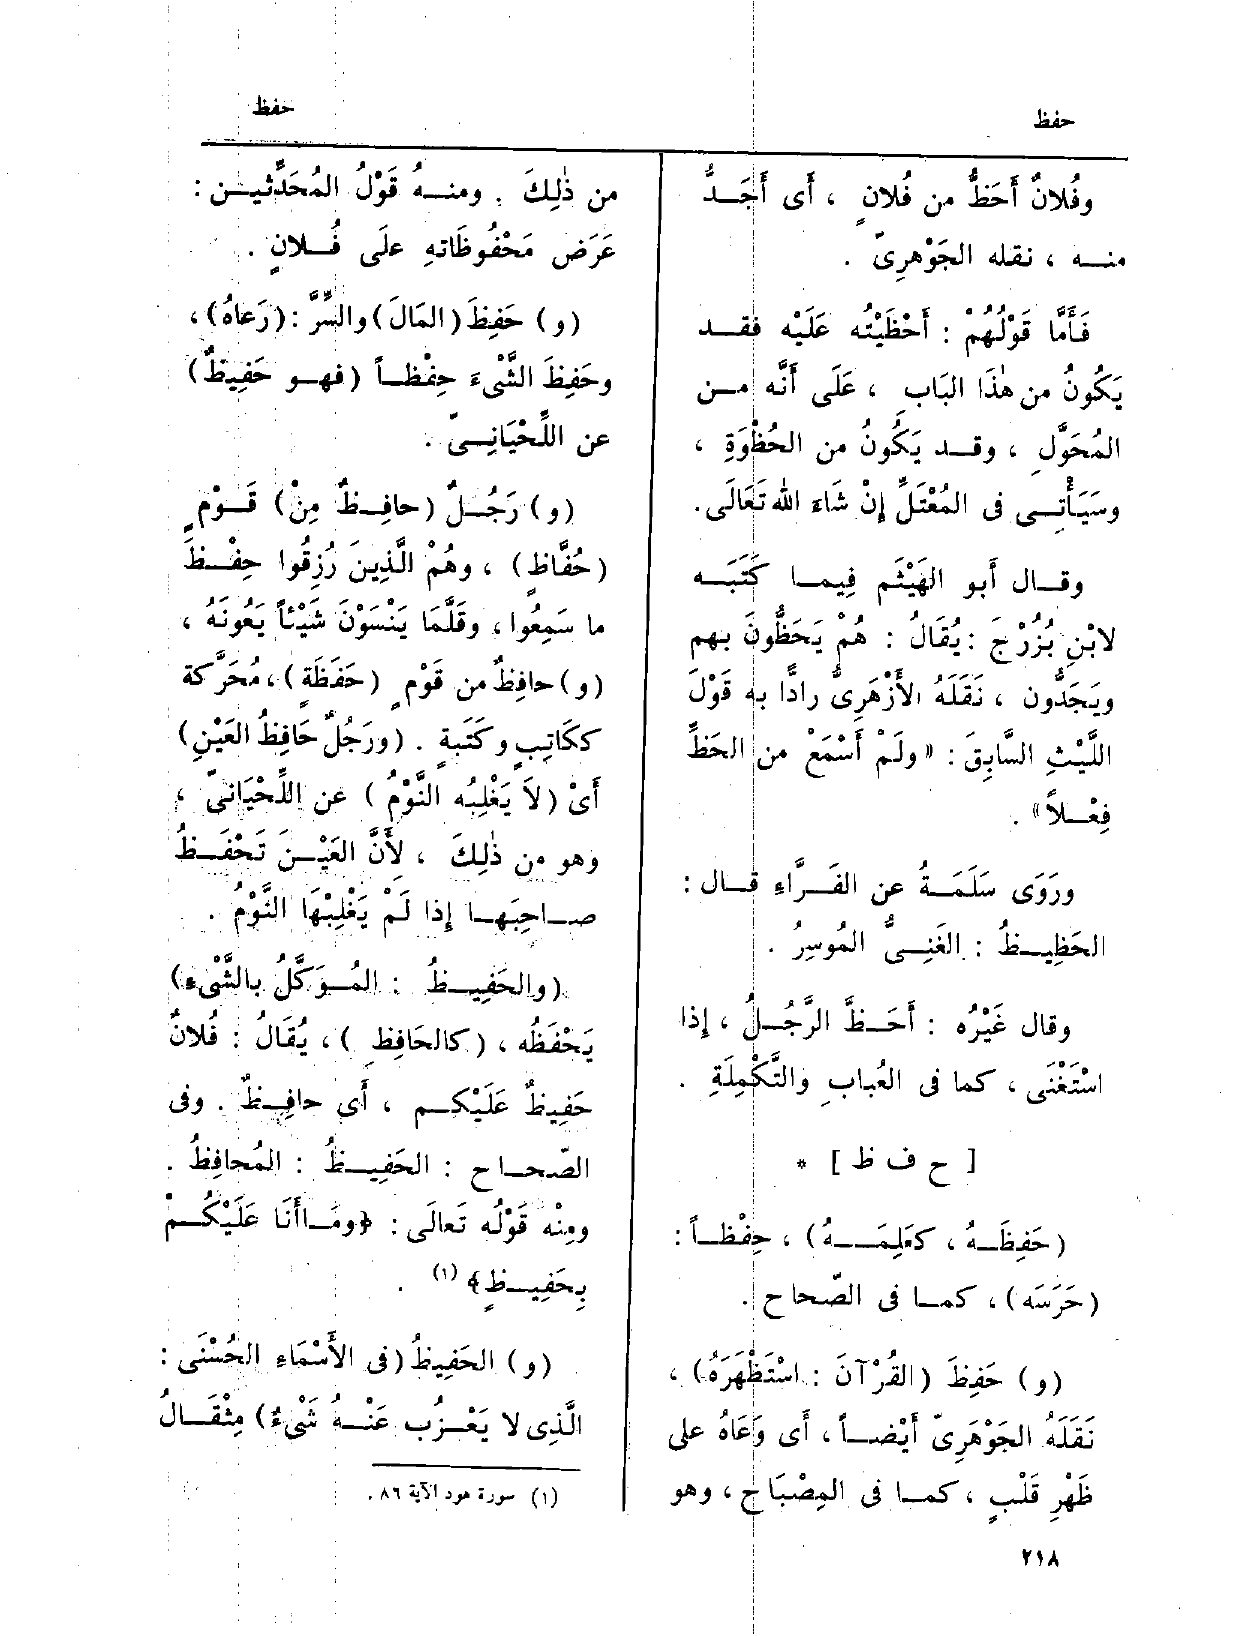 حفظ
حفظ
وفُلانٌ أَحَظُّ من فُلانٍ ، أَى أَجَـدُّ
منـه ، نقله الجَوْهرِىّ .
فَأَمَّا قَوْلُهُمْ : أَحْظَيْتُه عَلَيْه فقـد
يَكُونُ من هٰذَا البَابِ ، عَلَى أَنَّه مـن
المُحَوَّلِ ، وقـد يَكُونُ من الحُظْوَةِ ،
وسَيَأْتِـى فى المُعْتَلِّ إِنْ شَاءَ الله تَعَالَى.
وقـال أَبو الهَيْثَم فِيمـا كَتَبَـه
لابْنِ بُزُرْجَ : يُقَالُ : هُمْ يَحَظُّونَ بهم
ويَجَدُّون ، نَقَلَهُ الأَزْهَرِىُّ رادًّا به قَوْلَ
اللَّيْثِ السَّابِقَ : « ولَمْ أَسْمَعْ من الحَظِّ
فِعْـلاً» .
ورَوَى سَلَمَـةُ عن الفَـرَّاءِ قـال :
الحَظِيـظُ : الغَنِـىُّ المُوسِرُ .
وقال غَيْرُه : أَحَـظَّ الرَّجُـلُ ، إِذا
اسْتَغْنَى ، كما فى العُبابِ والتَّكْمِلَةِ .
[ ح ف ظ ] *
(حَفِظَـهُ ، كعَلِمَـهُ) ، حِفْظـاً :
(حَرَسَه) ، كمـا فى الصّحاح .
(و) حَفِظَ (القُرْآنَ : اسْتَظْهَرَهُ) ،
نَقَلَهُ الجَوْهَرِىّ أَيْضـاً ، أَى وَعَاهُ على
ظَهْرِ قَلْبٍ ، كمـا فى المِصْبَاح ، وهو
من ذٰلِكَ . ومنـهُ قَوْلُ المُحَدِّثِيـن :
عَرَض مَحْفُوظَاتهِ علَى فُـلانٍ .
(و) حَفِظَ (المَالَ) والسِّرَّ : (رَعاهُ) ،
وحَفِظَ الشَّىْءَ حِفْظـاً (فهـو حَفِيظٌ)
عن اللِّحْيَانِـىّ .
(و) رَجُـلٌ (حافِـظٌ مِنْ) قَـوْمٍ
(حُفَّاظٍ) ، وهُمْ الَّذِينَ رُزِقُوا حِفْـظَ
ما سَمِعُوا ، وقَلَّمَا يَنْسَوْنَ شَيْئاً يَعُونَهُ ،
(و) حافِظٌ من قَوْمٍ (حَفَظَةٍ) ، مُحَرَّكة
ككَاتِبٍ وكَتَبةٍ . (ورَجُلٌ حَافِظُ العَيْنِ)
أَىْ (لاَ يَغْلِبُه النَّوْمُ) عن اللِّحْيَانىّ ،
وهو من ذٰلِكَ ، لأَنَّ العَيْـنَ تَحْفَـظُ
صـاحِبَهـا إِذا لَمْ يَغْلِبْهَا النَّوْمُ .
(والحَفِيـظُ : المُـوَكَّلُ بالشَّىْءِ)
يَحْفَظُه ، (كالحَافِظ) ، يُقَالُ : فُلانٌ
حَفِيظٌ عَلَيْكـم ، أَى حافِـظٌ . وفى
الصّحـاح : الحَفِيـظُ : المُحافِظُ .
ومِنْه قَوْلُه تَعالَى : ﴿ومَـا أَنَا عَلَيْكُـمْ
بِحَفِيـظٍ﴾ (١) .
(و) الحَفِيظُ (فى الأَسْمَاءِ الحُسْنَى :
الَّذِى لا يَعْـزُب عَنْـهُ شَىْءٌ) مِثْقَـالُ
(١) سورة هود الآية ٨٦ .
٢١٨